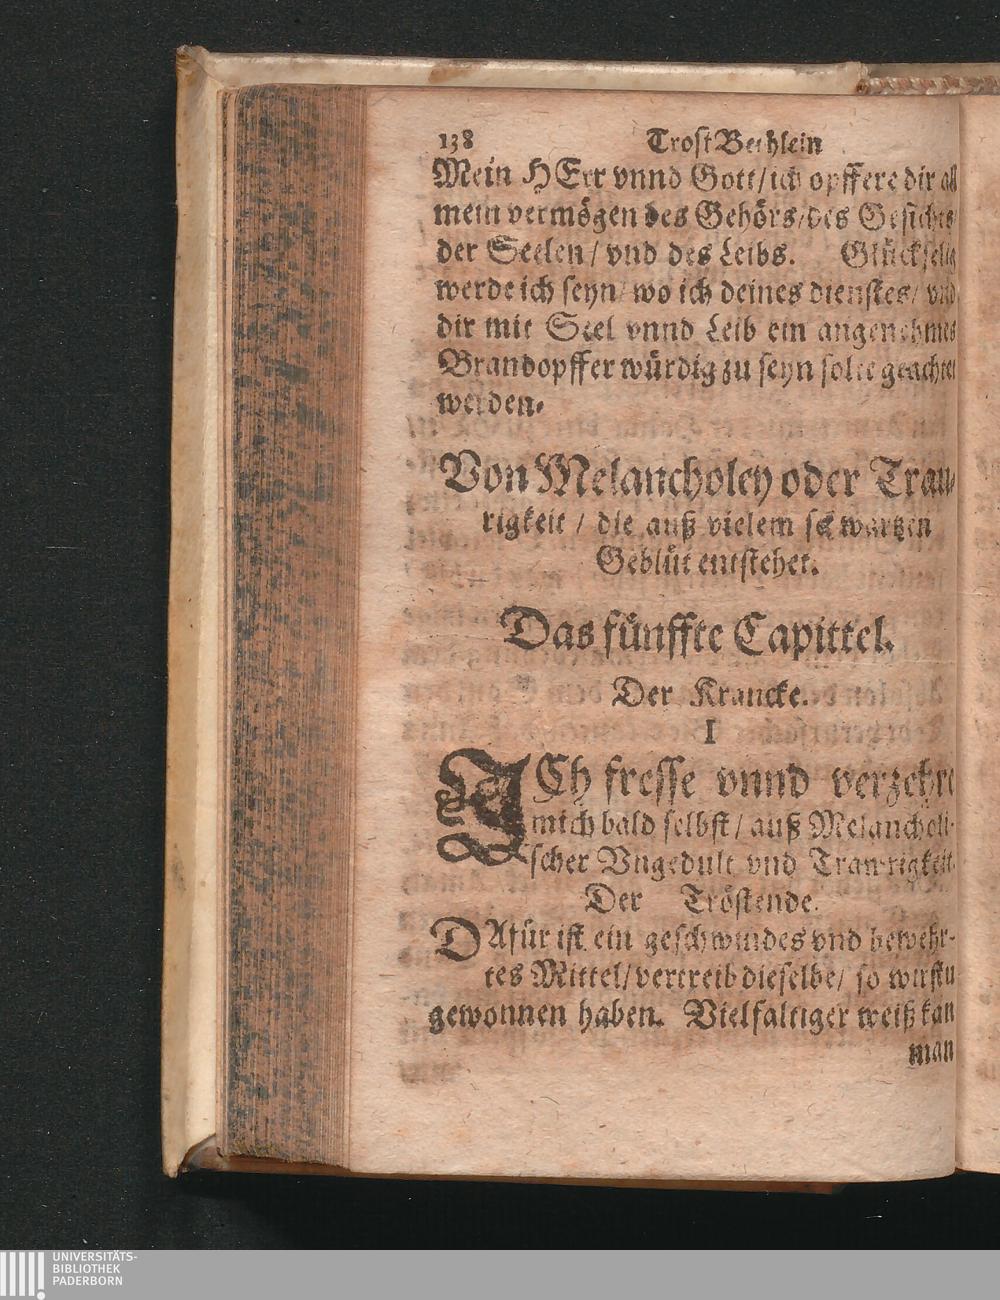 138 Trost Bechlein
Mein HErr vnnd Gott/ ich opffere dir all
mein vermögen des Gehörs/ des Gesichts
der Seelen/ vnd des Leibs. Glückselig
werde ich seyn/ wo ich deines dienstes/ vnd
dir mit Seel vnnd Leib ein angenehmes
Brandopffer würdig zu seyn solte geachtet
werden.
Von Melancholey oder Trau-
rigkeit / die auß vielem schwartzen
Geblüt entstehet.
Das fünffte Capittel.
Der Krancke.
I
ICh fresse vnnd verzehre
mich bald selbst/ auß Melancholi-
scher Vngedult vnd Trawrigkeit.
Der Tröstende.
DAfür ist ein geschwindes vnd bewehr-
tes Mittel/ vertreib dieselbe/ so wirstu
gewonnen haben. Vielfaltiger weiß kan
man
UNIVERSITÄTS-
BIBLIOTHEK
PADERBORN